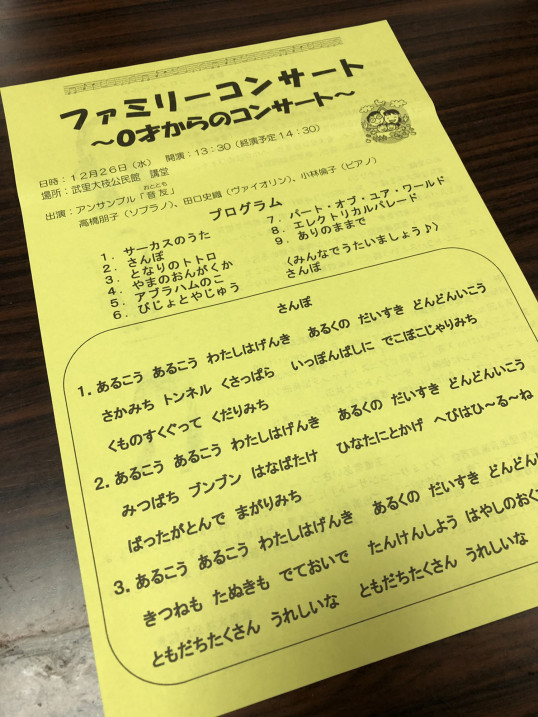 ファミリーコンサート
～0才からのコンサート～
日時：12月26日（水） 開演：13：30（終演予定14：30）
場所：武里大枝公民館 講堂
出演：アンサンブル「音友」
おととも
高橋朋子（ソプラノ）、田口史織（ヴァイオリン）、小林倫子（ピアノ）
プログラム
1．サーカスのうた
2．さんぽ
3．となりのトトロ
4．やまのおんがくか
5．アブラハムのこ
6．びじょとやじゅう
7．パート・オブ・ユア・ワールド
8．エレクトリカルパレード
9．ありのままで
〈みんなでうたいましょう♪〉
さんぽ
さんぽ
1．あるこう あるこう わたしはげんき あるくの だいすき どんどんいこう
さかみち トンネル くさっぱら いっぽんばしに でこぼこじゃりみち
くものすくぐって くだりみち
2．あるこう あるこう わたしはげんき あるくの だいすき どんどんいこう
みつばち ブンブン はなばたけ ひなたにとかげ へびはひ～る～ね
ばったがとんで まがりみち
3．あるこう あるこう わたしはげんき あるくの だいすき どんどん
きつねも たぬきも でておいで たんけんしよう はやしのおく
ともだちたくさん うれしいな ともだちたくさん うれしいな